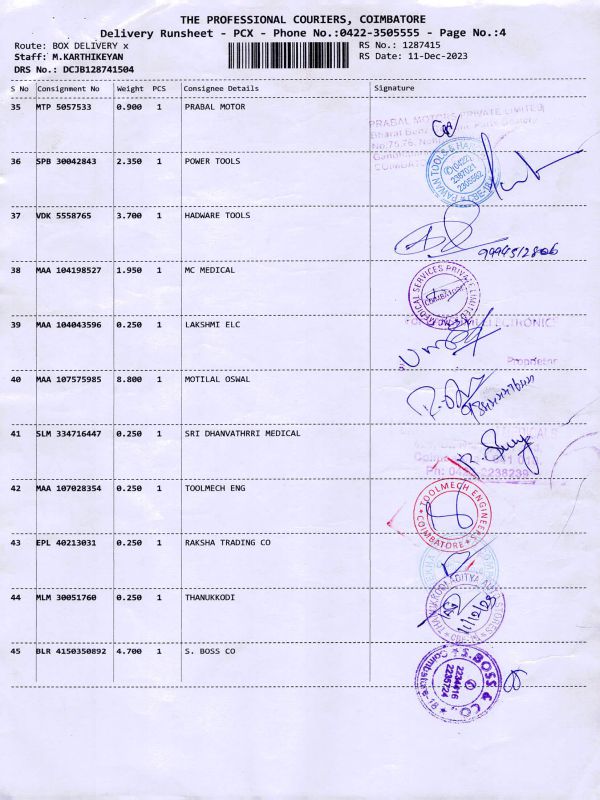 THE PROFESSIONAL COURIERS, COIMBATORE
Delivery Runsheet - PCX - Phone No.:0422-3505555 - Page No.:4
Route: BOX DELIVERY x
RS No.: 1287415
Staff: M.KARTHIKEYAN
RS Date: 11-Dec-2023
DRS No.: DCJB128741504
S No Consignment No Weight PCS Consignee Details Signature
35 MTP 5057533 0.900 1 PRABAL MOTOR
PRABAL MOTORS PRIVATE LIMITED
36 SPB 30042843 2.350 1 POWER TOOLS
PAWAN TOOLS &
0422
2387021
2305582
CBE-18
37 VDK 5558765 3.700 1 HADWARE TOOLS
38 MAA 104198527 1.950 1 MC MEDICAL
MEDICAL SERVICES PRIVATE LIMITED
COIMBATORE
39 MAA 104043596 0.250 1 LAKSHMI ELC
Proprietor
40 MAA 107575985 8.800 1 MOTILAL OSWAL
41 SLM 334716447 0.250 1 SRI DHANVATHRRI MEDICAL
42 MAA 107028354 0.250 1 TOOLMECH ENG
TOOLMECH ENGINEERS
COIMBATORE
43 EPL 40213031 0.250 1 RAKSHA TRADING CO
44 MLM 30051760 0.250 1 THANUKKODI
11/12/23
45 BLR 4150350892 4.700 1 S. BOSS CO
S. BOSS & CO
2234416
2235724
Coimbatore-18